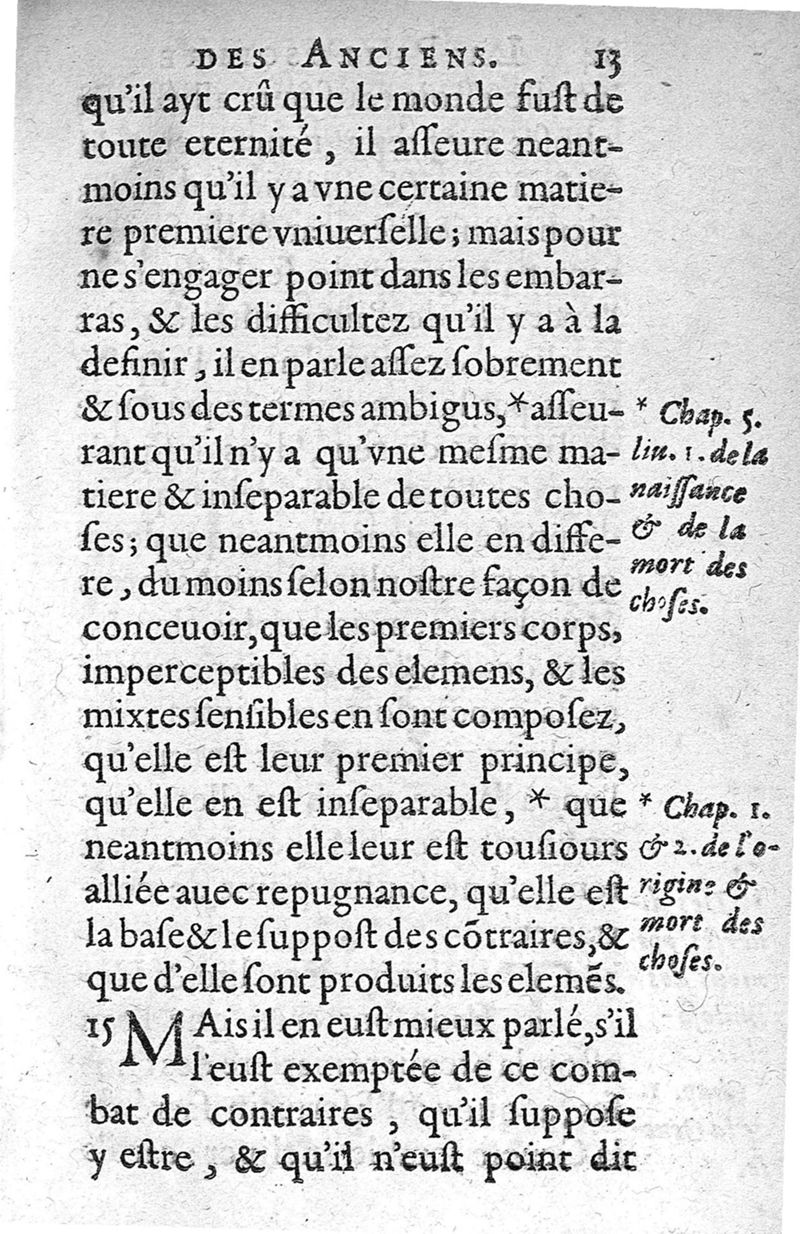 DES ANCIENS. 13
qu'il ayt crû que le monde fuſt de
toute eternité, il aſſeure neant-
moins qu'il y a vne certaine matie-
re premiere vniuerſelle; mais pour
ne s'engager point dans les embar-
ras, & les difficultez qu'il y a à la
definir, il en parle aſſez ſobrement
& ſous des termes ambigus,* aſſeu-
rant qu'il n'y a qu'vne meſme ma-
tiere & inſeparable de toutes cho-
ſes; que neantmoins elle en diffe-
re, du moins ſelon noſtre façon de
conceuoir, que les premiers corps,
imperceptibles des elemens, & les
mixtes ſenſibles en ſont compoſez,
qu'elle eſt leur premier principe,
qu'elle en eſt inſeparable, * que
neantmoins elle leur eſt touſiours
alliée auec repugnance, qu'elle eſt
la baſe & le ſuppoſt des cõtraires, &
que d'elle ſont produits les elemẽs.
15 MAis il en euſt mieux parlé, s'il
l'euſt exemptée de ce com-
bat de contraires, qu'il ſuppoſe
y eſtre, & qu'il n'euſt point dit
* Chap. 5.
liu. 1. de la
naiſſance
& de la
mort des
choſes.
* Chap. 1.
& 2. de l'o-
rigine &
mort des
choſes.